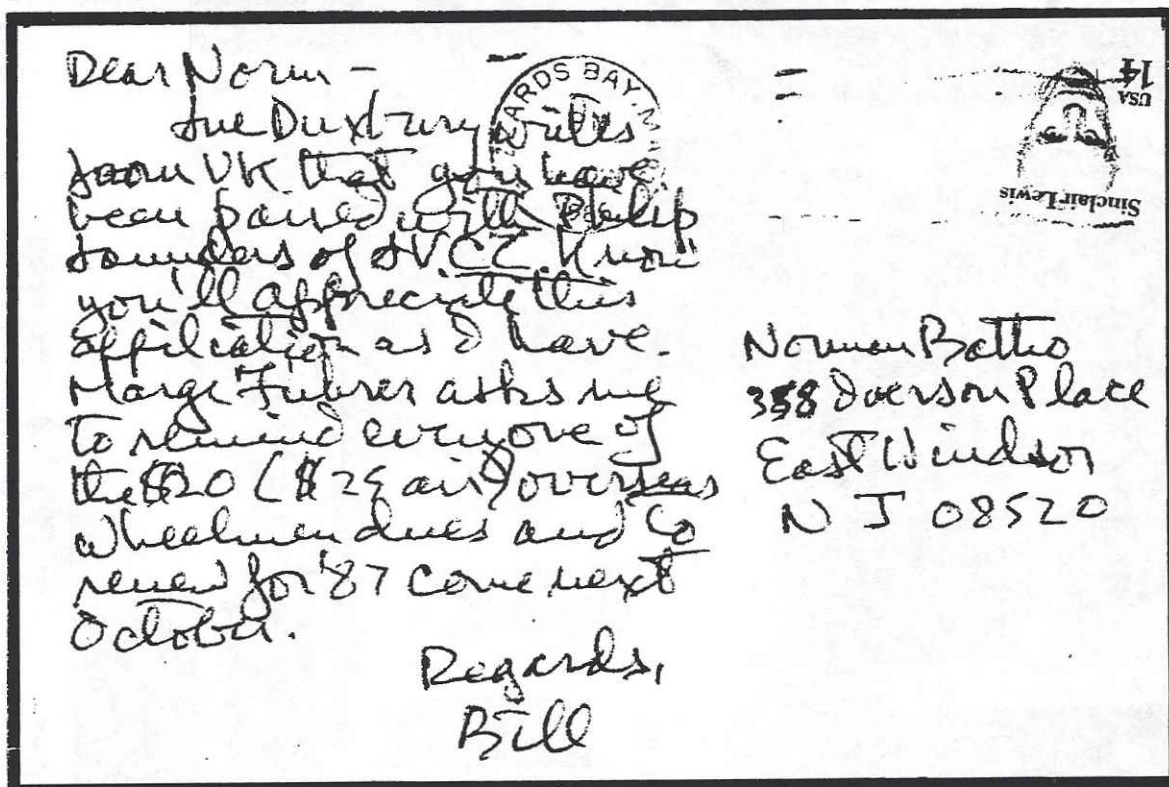 Dear Norm –
Sue Duxbury writes
from UK that you have
been paired with Philip
Saunders of SVCC. Know
you'll appreciate this
affiliation as I have.
Marge Fuhrer asks me
to remind everyone of
the $20 ($25 air) overseas
Wheelmen dues and to
renew for '87 come next
October.
Regards,
Bill
ARDS BAY, M
USA
14
Sinclair Lewis
Norman Batho
358 Iverson Place
East Windsor
N J 08520